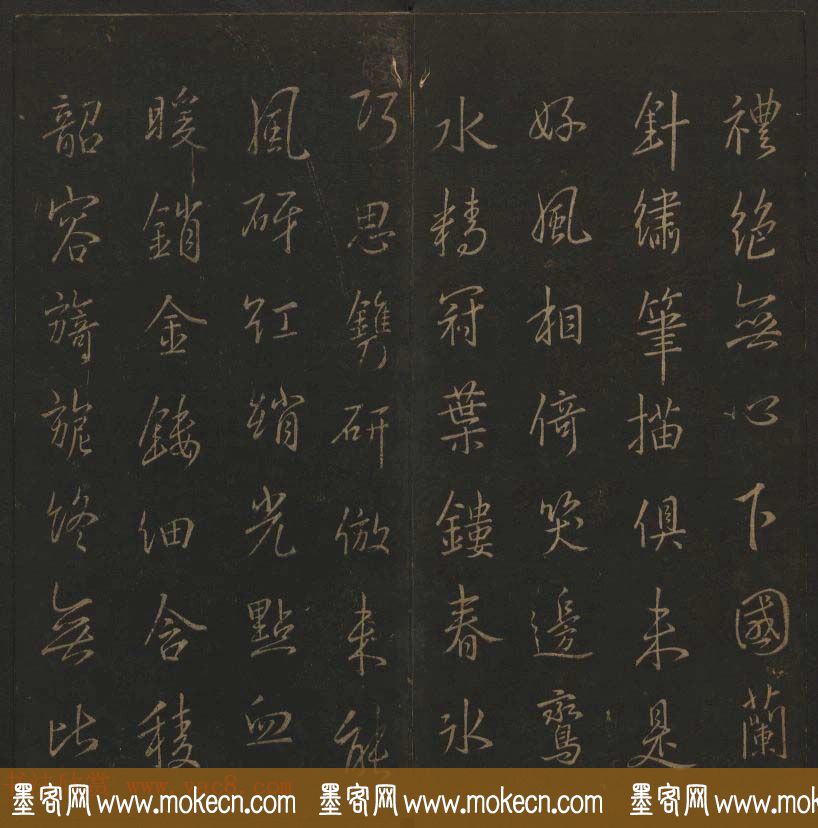 禮絕無心下國蘭
針繡筆描俱未是
好風相倚笑邊鸞
水精冠葉鏤春冰
巧思鐫研倣未能
風砑紅綃光點血
暖銷金縷細含稜
韶容旖旎終無比
墨客网 www.mokecn.com 墨客网 www.mokecn.com 墨客网 www.mokecn.com